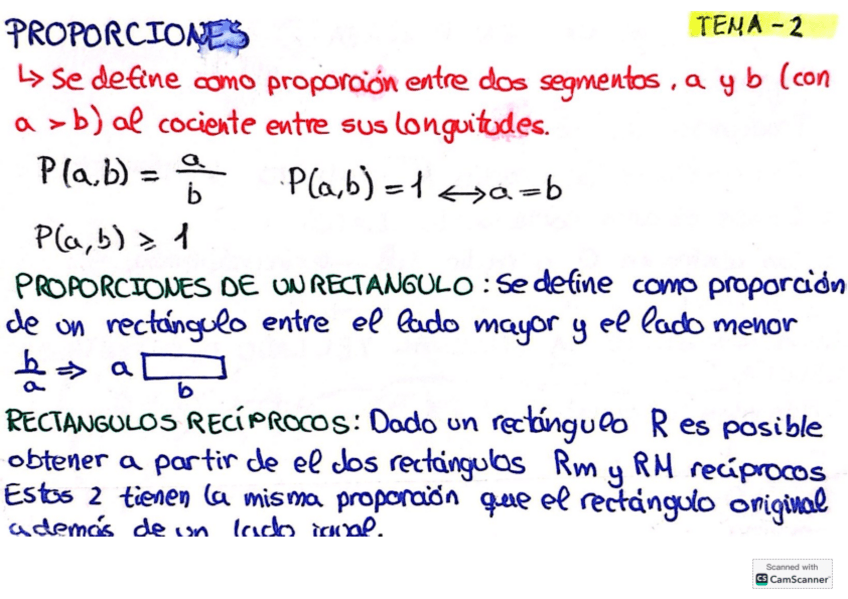 PROPORCIONES
TEMA-2
↳ Se define como proporción entre dos segmentos, a y b (con
a > b) al cociente entre sus longuitudes.
P(a,b) = a/b P(a,b) = 1 ↔ a = b
P(a,b) ≥ 1
PROPORCIONES DE UN RECTANGULO: Se define como proporción
de un rectángulo entre el lado mayor y el lado menor
b/a ⇒ a
b
RECTANGULOS RECÍPROCOS: Dado un rectángulo R es posible
obtener a partir de el dos rectángulos Rm y RM recíprocos
Estos 2 tienen la misma proporción que el rectángulo original
además de un lado igual.
Scanned with
CS CamScanner